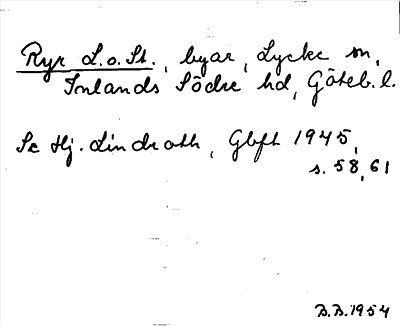 Ryr L.o.St., byar, Lycke sn,
Inlands Södre hd, Göteb.l.
Se Hj. Lindroth, Gbft 1945,
s. 58, 61
B.B. 1954